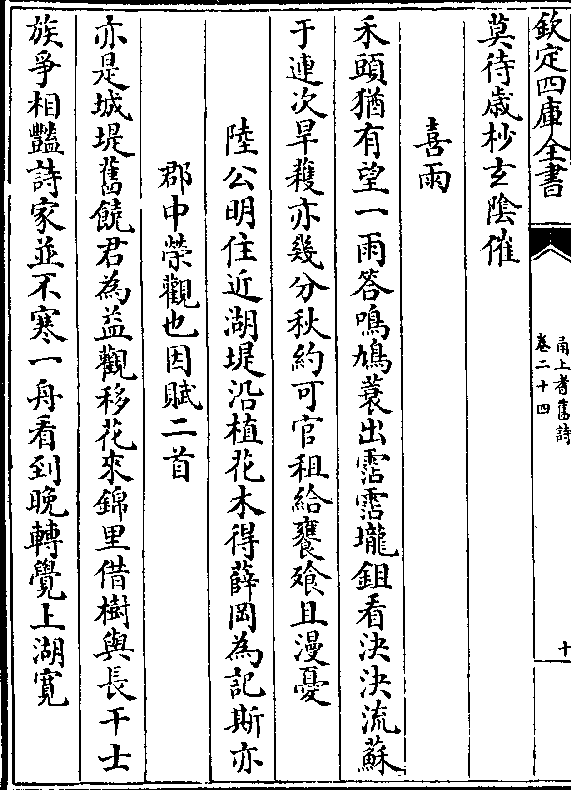 欽定四庫全書
甬上耆舊詩
卷二十四
十
莫待歲杪玄陰催
喜雨
禾頭猶有望一雨答鳴鳩蓑出霑霑壠鉏看決決流蘇
于連次旱穫亦幾分秋約可官租給饔飱且漫憂
陸公明住近湖堤沿植花木得薛岡為記斯亦
郡中榮觀也因賦二首
亦是城堤舊饒君為益觀移花來錦里借樹與長干士
族爭相豔詩家並不寒一舟看到晚轉覺上湖寛